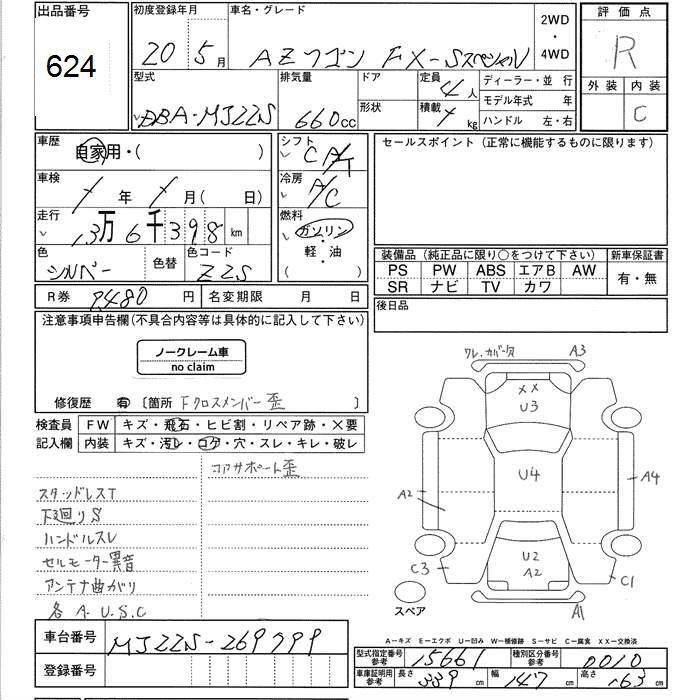 出品番号 624
初度登録年月 20年 5月
車名・グレード AZワゴン FX-Sスペシャル
2WD・4WD
評価点 R
外装 内装 C
型式 DBA-MJ22S
排気量 660cc
ドア 形状
定員 4人
積載 kg
ディーラー・並行
モデル年式 年
ハンドル 左・右
車歴 自家用・( )
シフト CAT
セールスポイント (正常に機能するものに限ります)
車検 年 月(日)
冷房 A/C
走行 13万6千398km
燃料 ガソリン・軽・油 ( )
色 シルバー 色替 色コード Z2S
装備品 (純正品に限り○をつけて下さい) 新車保証書
PS PW ABS エアB AW 有・無
SR ナビ TV カワ
R券 8480円 名変期限 月 日
後日品
注意事項申告欄(不具合内容等は具体的に記入して下さい)
ノークレーム車
no claim
修復歴 有 〔箇所 Fクロスメンバー歪 〕
検査員 FW キズ・飛石・ヒビ割・リペア跡・×要
記入欄 内装 キズ・汚レ・コゲ・穴・スレ・キレ・破レ
コアサポート歪
スタッドレスT
下廻りS
ハンドルスレ
セルモーター異音
アンテナ曲がり
各A.U.S.C
ワレ.カバー欠 A3
XX
U3
U4
A2 A4
U2
A2
C3 C1
スペア A1
A-キズ E-エクボ U-凹み W-補修跡 S-サビ C-腐食 XX-交換済
車台番号 MJ22S-269799
登録番号
型式指定番号 参考 15661 種別区分番号 参考 0010
車庫証明用 参考 長さ 339cm 幅 147cm 高さ 163cm